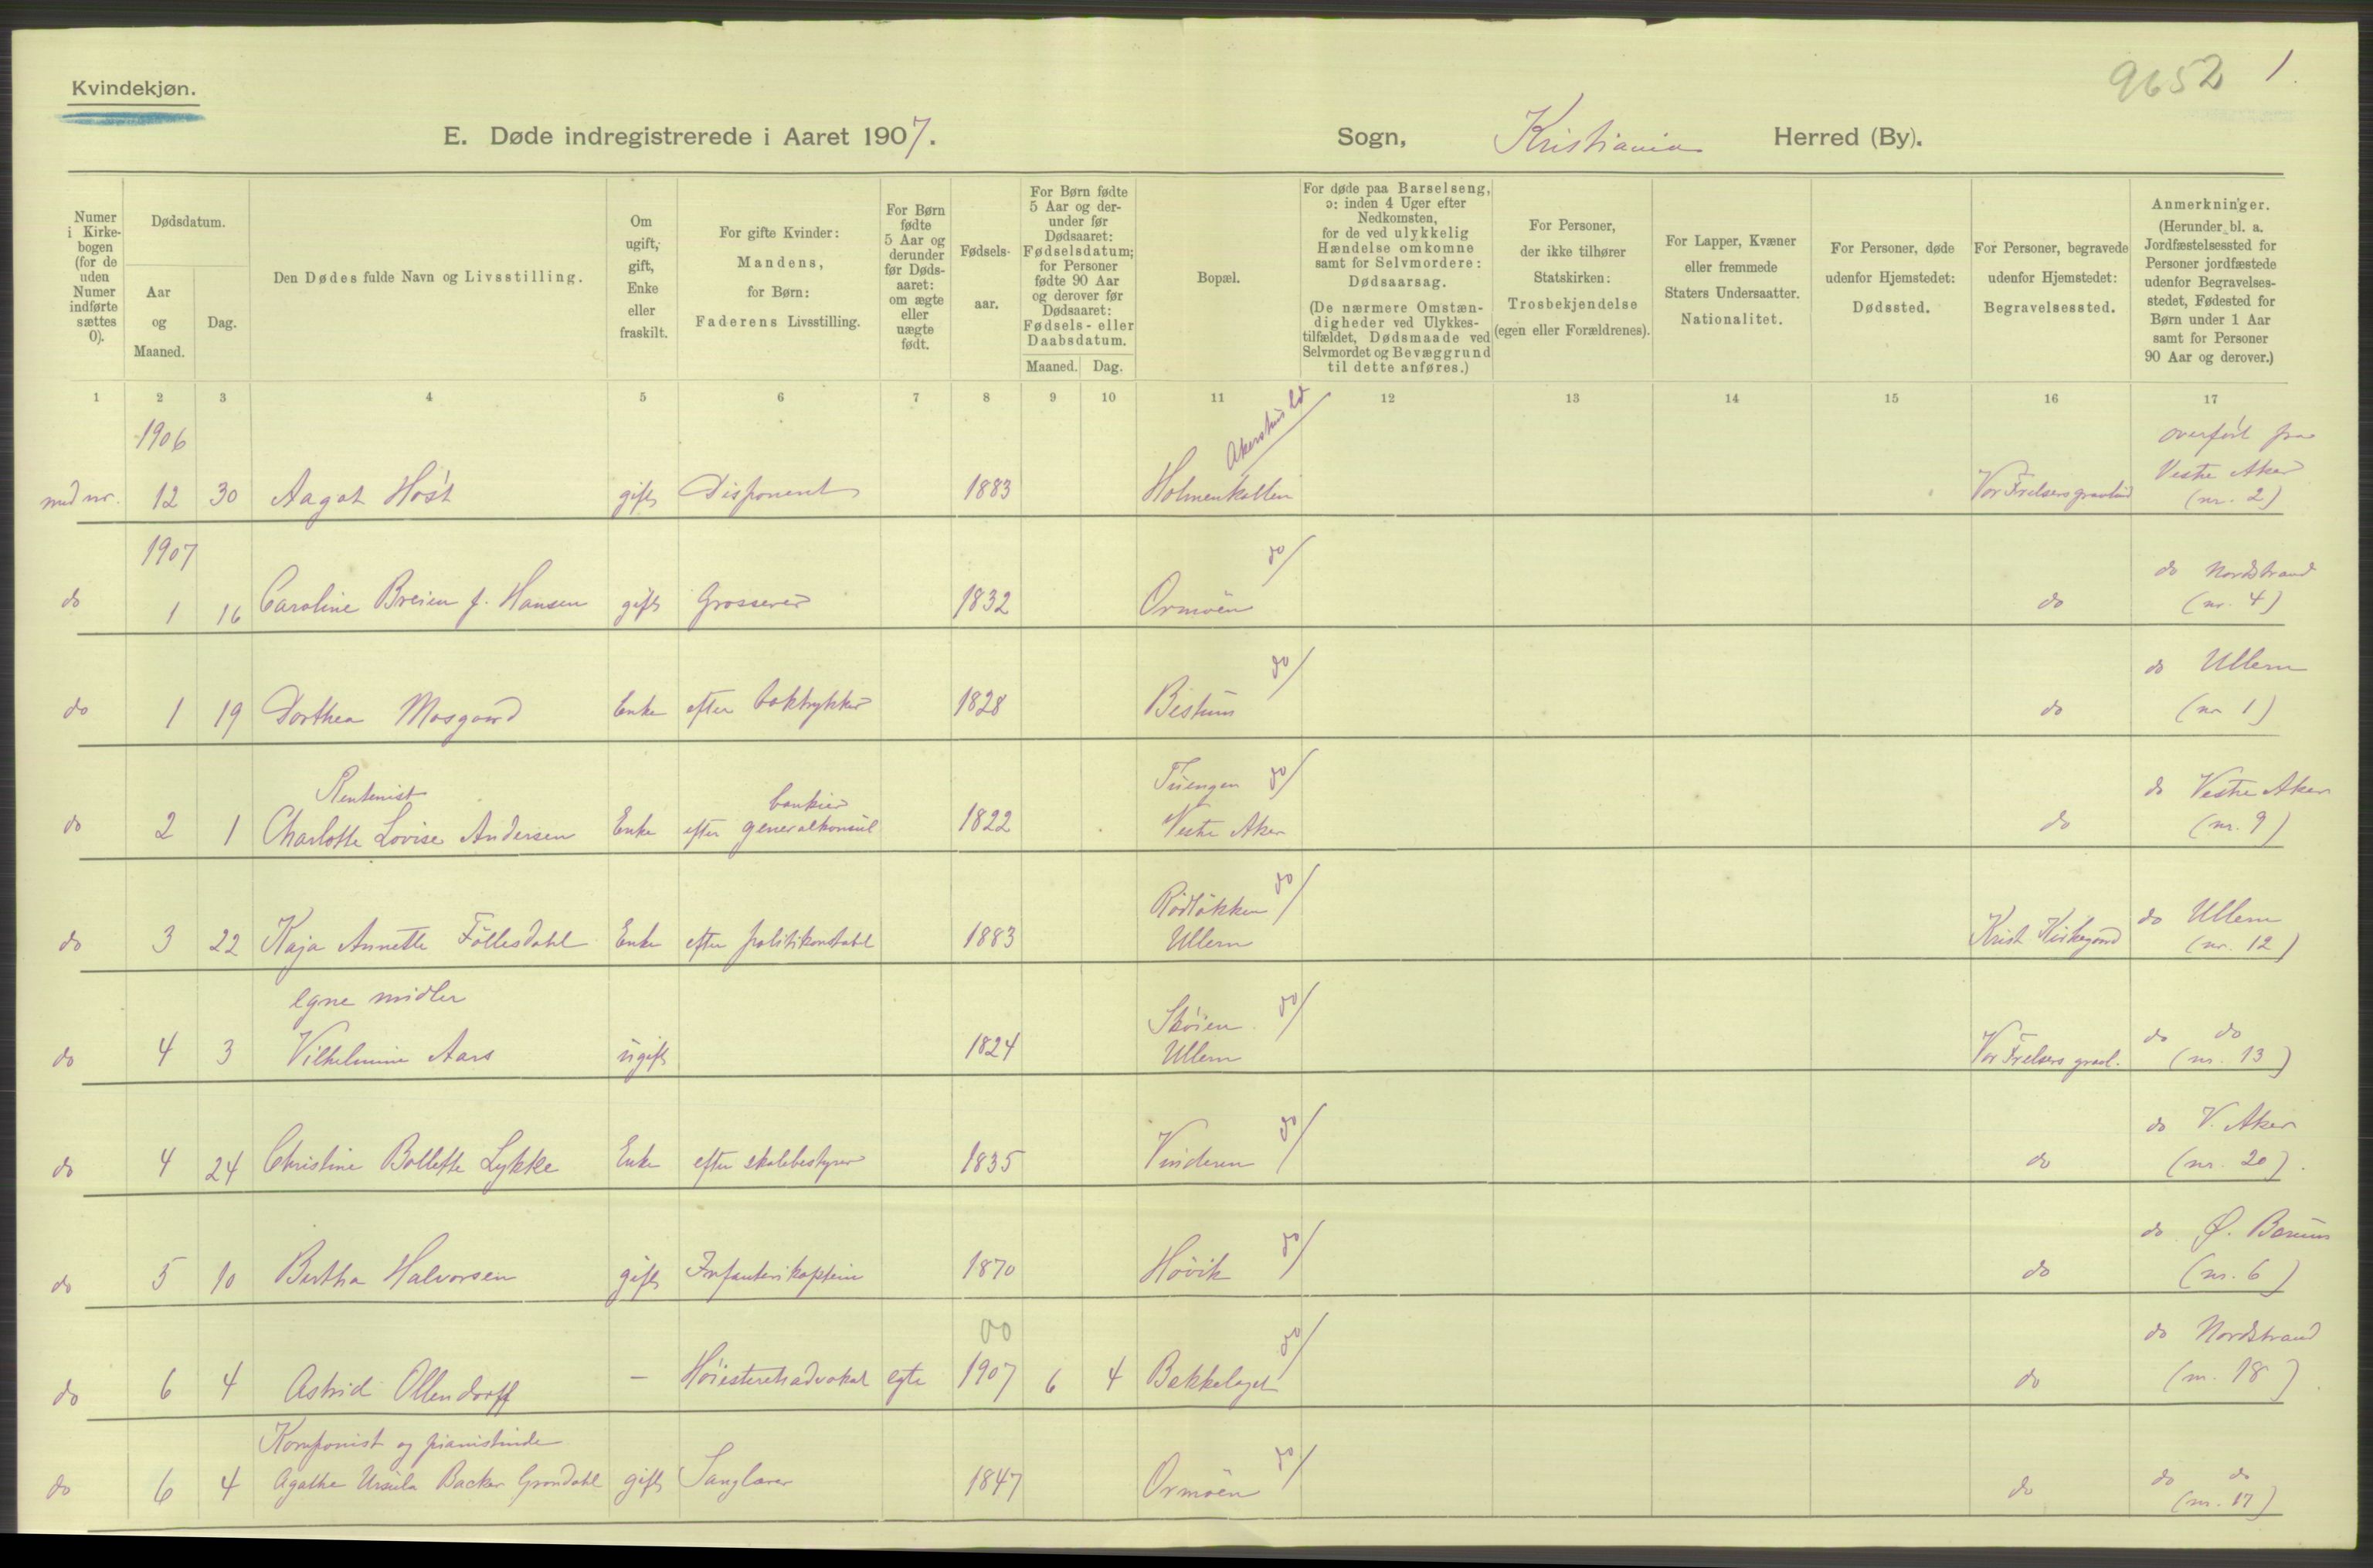 Kvindekjøn.
9652 1.
E. Døde indregistrerede i Aaret 1907.
Sogn, Kristiania Herred (By).
Numer i Kirkebogen (for de uden Numer indførte sættes 0).
Dødsdatum.
Aar og Maaned.
Dag.
Den Dødes fulde Navn og Livsstilling.
Om ugift, gift, Enke eller fraskilt.
For gifte Kvinder: Mandens, for Børn: Faderens Livsstilling.
For Børn fødte 5 Aar og derunder før Dødsaaret: om ægte eller uægte født.
Fødselsaar.
For Børn fødte 5 Aar og derunder før Dødsaaret: Fødselsdatum; for Personer fødte 90 Aar og derover før Dødsaaret: Fødsels- eller Daabsdatum.
Maaned. Dag.
Bopæl.
For døde paa Barselseng, ɔ: inden 4 Uger efter Nedkomsten, for de ved ulykkelig Hændelse omkomne samt for Selvmordere: Dødsaarsag.
(De nærmere Omstændigheder ved Ulykkestilfældet, Dødsmaade ved Selvmordet og Bevæggrund til dette anføres.)
For Personer, der ikke tilhører Statskirken: Trosbekjendelse (egen eller Forældrenes).
For Lapper, Kvæner eller fremmede Staters Undersaatter. Nationalitet.
For Personer, døde udenfor Hjemstedet: Dødssted.
For Personer, begravede udenfor Hjemstedet: Begravelsessted.
Anmerkninger. (Herunder bl. a. Jordfæstelsessted for Personer jordfæstede udenfor Begravelsesstedet, Fødested for Børn under 1 Aar samt for Personer 90 Aar og derover.)
1 2 3 4 5 6 7 8 9 10 11 12 13 14 15 16 17
1906 Akershus overført fra
12 30 Aagot Høst gift Disponent 1883 Holmenkollen Vor Frelsers gravlund Vestre Aker (nr. 2)
1907 do do Nordstrand
do 1 16 Caroline Breien f. Hansen gift Grosserer 1832 Ormøen do (nr. 4)
do do Ullern
do 1 19 Dorthea Mosgaard Enke efter boktrykker 1828 Bestum do (nr 1)
Rentenist bankier Tuengen do do Vestre Aker
do 2 1 Charlotte Lovise Andersen Enke efter generalkonsul 1822 Vestre Aker do (nr. 9)
Rødløkken do do Ullern
do 3 22 Kaja Annette Føllesdahl Enke efter politikonstabel 1883 Ullern Krist Kirkegaard (nr. 12)
egne midler Skøien do do do
do 4 3 Vilhelmine Aars ugift 1824 Ullern Vor Frelsers gravl. (nr. 13)
do do V. Aker
do 4 24 Christine Bollette Lykke Enke efter skolebestyrer 1835 Vinderen do (nr. 20).
do do Ø. Bærum
do 5 10 Bertha Halvorsen gift Infanterikaptein 1870 Høvik do (nr. 6)
00 do do Nordstrand
do 6 4 Astrid Ollendorff — Høiesteretsadvokat egte 1907 6 4 Bekkelaget do (nr. 18)
Komponist og pianistinde do do do
do 6 4 Agathe Ursula Backer Grøndahl gift Sanglærer 1847 Ormøen do (nr. 17)